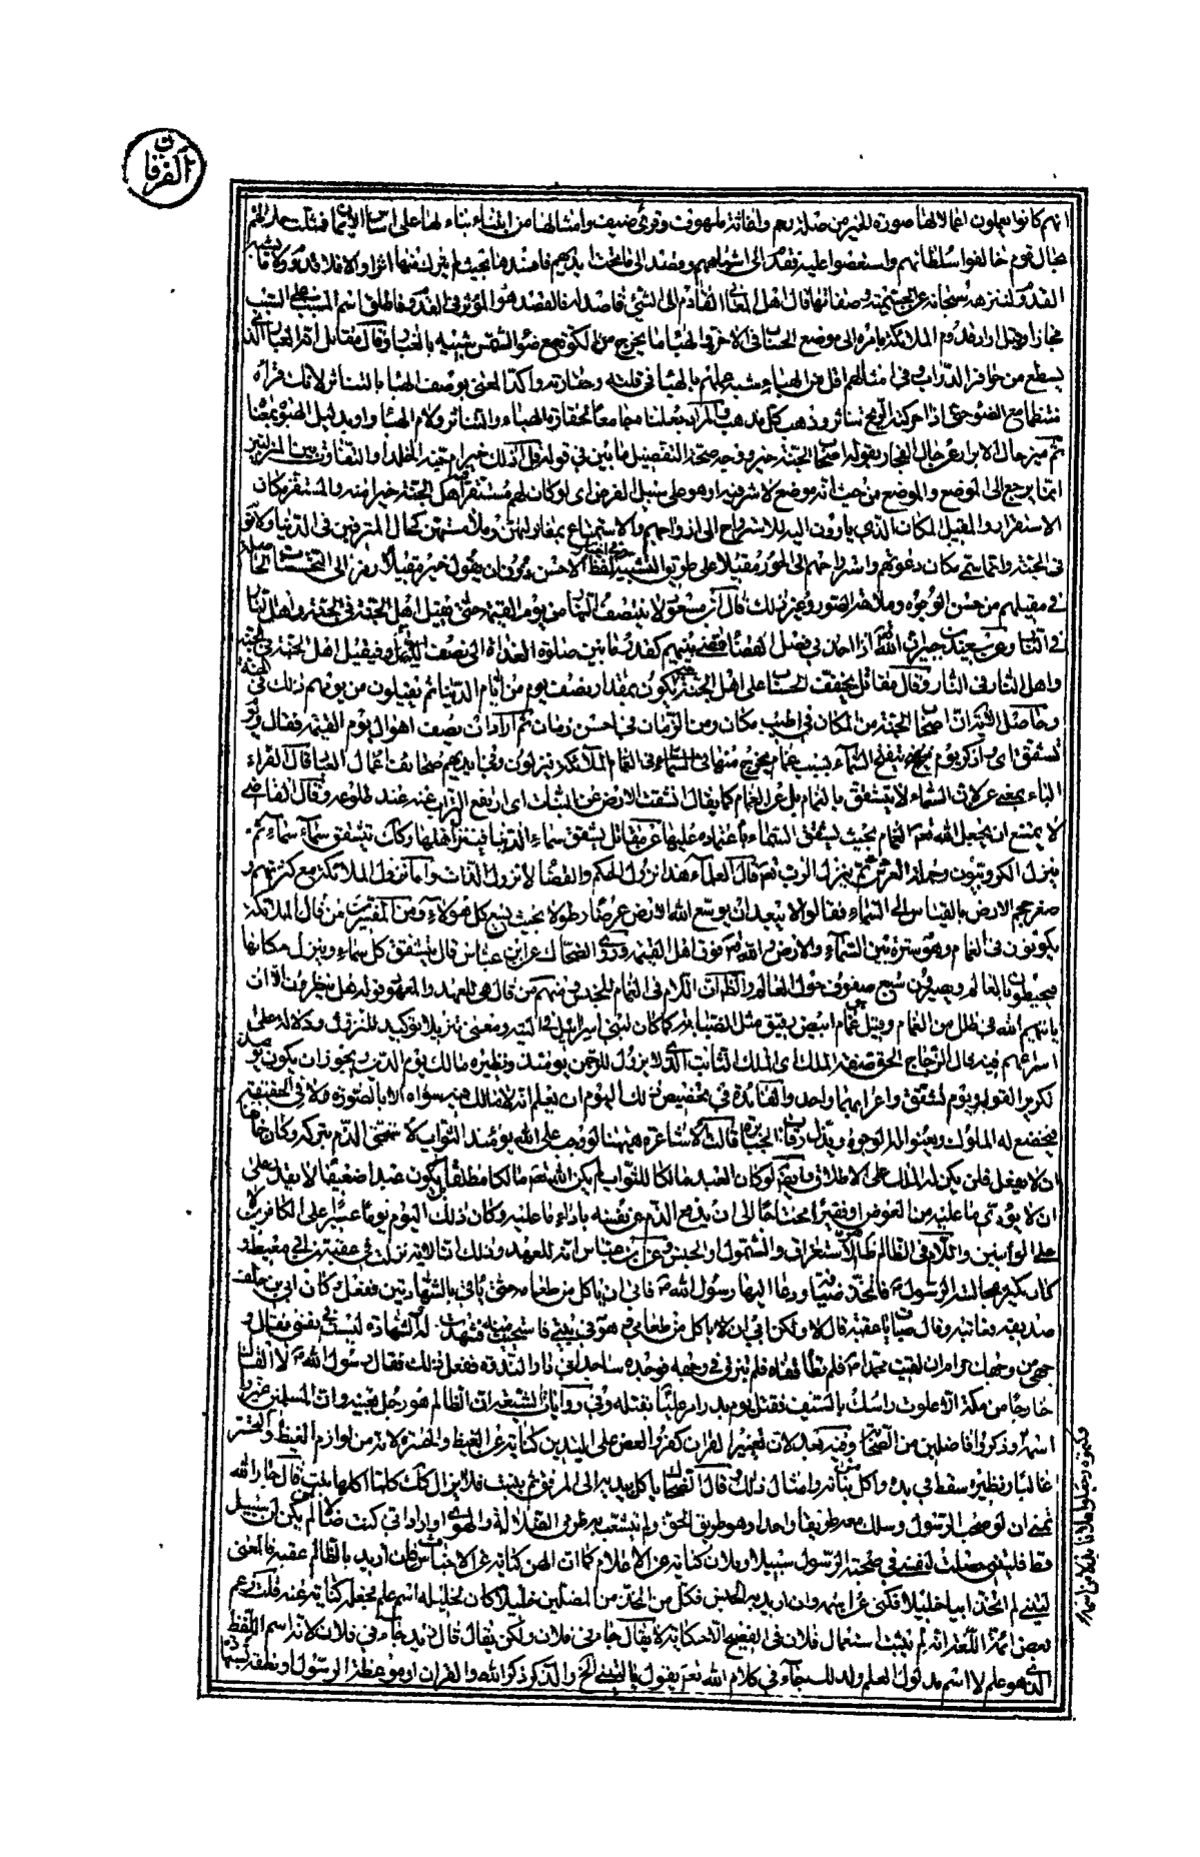 الفرقان
انهم كانوا يعملون اعمالا لها صورة الخير من صلة رحم واغاثة ملهوف وقرى ضيف وامثالها من ابتناء بناء لها على اساس الايمان فمثلت حالهم
بحال قوم خالفوا سلطانهم واستعصوا عليه فقدم الى اشيائهم وقصد الى ما تحت ايديهم فافسدها بحيث لم يترك منها اثرا والا فلا قدوم ولا ما يشبه
القدوم لتنزهه سبحانه عن الجسمية وصفاتها قال اهل المعانى القادم الى الشئ قاصد له فالقصد هو المؤثر فى القدوم فاطلق اسم المسبب على السبب
مجازا وقيل اراد قدوم الملائكة بامره الى موضع الحساب فى الآخرة الهباء ما يخرج من الكوة مع ضوء الشمس شبيه بالغبار وقال مقاتل انه الغبار الذى
يسطع من حوافر الدواب وفى امثالهم اقل من الهباء شبه عملهم بالهباء فى قلته وحقارته واكد المعنى بوصف الهباء بالتناثر لانك تراه
منتظما مع الضوء حتى اذا حركته الريح تناثر وذهب كل مذهب والمراد جعلنا جامعا لحقارة الهباء والتناثر ولام الهباء واو بدليل الهبوة بمعناه
ثم ميز حال الابرار عن حال الفجار بقوله اصحاب الجنة خير ووجه صحة التفضيل ما بين فى قوله قل اذلك خير ام جنة الخلد او التفاوت بين المنزلتين
انما يرجع الى الموضع والموضع من حيث انه موضع لا شر فيه او هو على سبيل الفرض اى لو كان لهم مستقر كان مستقر اهل الجنة خيرا منه والمستقر مكان
الاستقرار والمقيل المكان الذى ياوون اليه للاسترواح الى ازواجهم والاستمتاع بمغازلتهن وملامستهن كحال المترفين فى الدنيا ولا نوم
فى الجنة وانما سمى مكان دعوتهم واسترواحهم الى الحور مقيلا على طريق التشبيه وفى اختيار لفظ الاحسن دون ان يقول خير مقيلا رمز الى التحسنات الحاصلة
فى مقيلهم من حسن الوجوه وملاحة الصور وغير ذلك قال ابن مسعود لا ينتصف النهار من يوم القيمة حتى يقيل اهل الجنة فى الجنة واهل النار
فى النار وعن سعيد بن جبير ان الله تعالى اذا اخذ فى فصل القضاء قضى بينهم كقدر ما بين صلوة الغداة الى نصف النهار فيقيل اهل الجنة فى الجنة
واهل النار فى النار وقال مقاتل يخفف الحساب على اهل الجنة حتى يكون بمقدار نصف يوم من ايام الدنيا ثم يقيلون من يومهم ذلك فى الجنة
وحاصل الآية ان اصحاب الجنة من المكان فى اطيب مكان ومن الزمان فى احسن زمان ثم اراد ان يصف اهوال يوم القيمة فقال ويوم
تشقق اى واذكر يوم تتفتح السماء بسبب غمام يخرج منها وفى السماء فى الغمام الملائكة ينزلون وفى ايديهم صحائف اعمال العباد قال الفراء
الباء بمعنى عن لان السماء لا تتشقق بالغمام بل عن الغمام كما يقال انشقت الارض عن النبات اى ارتفع التراب عنه عند طلوعه وقال القاضى
لا يمتنع ان يجعل الله تعالى الغمام بحيث تشقق السماء باعتماده عليها عن مقاتل تشقق سماء الدنيا فينزل اهلها وكذلك تتشقق سماء سماء ثم
ينزل الكروبيون وحملة العرش ثم ينزل الرب تعالى قال العلماء هذا نزول الحكم والقضاء لا نزول الذات واما نزول الملائكة مع كثرتهم و
صغر حجم الارض بالقياس الى السماء فقالوا لا يبعد ان يوسع الله الارض عرضا وطولا بحيث تسع كل هؤلاء ومن المفسرين من قال الملائكة
يكونون فى الغمام وهو سترة بين السماء والارض والله تعالى فوق اهل القيمة وروى الضحاك عن ابن عباس قال تتشقق كل سماء وينزل سكانها
فيحيطون بالعالم ويصيرون سبع صفوف حول العالم والظاهر ان اللام فى الغمام للجنس ومنهم من قال هى للعهد والمعهود قوله هل ينظرون الا ان
ياتيهم الله فى ظلل من الغمام وقيل هى غمام ابيض رقيق مثل الضبابة كما كان لبنى اسرائيل فى التيه ومعنى تنزيلا توكيد للنزول ودلالة على
اسراعهم فيه قال الزجاج الحق صفة الملك اى الملك الثابت الذى لا يزول للرحمن يومئذ ونظيره مالك يوم الدين يجوز ان يكون يومئذ
تكريرا لقوله ويوم تشقق واعرابهما واحد والفائدة فى تخصيص ذلك اليوم ان يعلم انه لا مالك فيه سواه لا بالصورة ولا فى الحقيقة
يخضع له الملوك وتعنو له الوجوه وتذل رقاب الجبابرة قالت الاشاعرة ههنا لو وجب على الله يومئذ الثواب لاستحق الذم بتركه وكان خائفا
ان لا يفعل فلم يكن له الملك على الاطلاق وايضا لو كان العبد مالكا للثواب لم يكن الله تعالى مالكا مطلقا بل يكون عبدا ضعيفا لا يقدر على
ان لا يؤدى ما عليه من العوض او فقيرا محتاجا الى ان يدفع الذم عن نفسه باداء ما عليه وكان ذلك اليوم يوما عسيرا على الكافرين لا
على المؤمنين واللام فى الظالم ظاهر الاستغراق والشمول او الجنس وعن ابن عباس انه للعهد وذلك ان الآية نزلت فى عقبة بن ابى معيط و
كان يكثر مجالسة الرسول ص فاتخذ ضيافة ودعا اليها رسول الله ص فابى ان ياكل من طعامه حتى ياتى بالشهادتين ففعل وكان ابى بن خلف
صديقه فعاتبه وقال صبات يا عقبة قال لا ولكن ابى ان لا ياكل من طعامى وهو فى بيتى فاستحييت منه فشهدت له والشهادة ليست فى نفسى فقال و
جهى من وجهك حرام ان لقيت محمدا ص فلم تطا قفاه ولم تبزق فى وجهه فوجده ساجدا فى دار الندوة ففعل ذلك فقال رسول الله ص لا القاك
خارجا من مكة الا علوت راسك بالسيف فقتل يوم بدر امر عليا بقتله وفى روايات الشيعة ان الظالم هو رجل بعينه وان المسلمين غيروا
اسمه وذكروا فاضلين من الصحابة وفيه بعد لان تغيير القرآن كفر والعض على اليدين كناية عن الغيظ والحسرة لانه من لوازم الغيظ والتحسر
غالبا ونظيره سقط فى يده واكل من بنانه وامثال ذلك وقال الضحاك ياكل يديه الى المرفق ثم تنبت فلا يزال كذلك كلما اكلها نبتت قال جار الله
تمنى ان لو صحب الرسول وسلك معه طريقا واحدا وهو طريق الحق ولم تتشعب به طرق الضلالة والهوى او اراد انى كنت ضالا لم يكن لى سبيل
قط فليتنى حصلت لنفسى فى صحبة الرسول سبيلا وفلان كناية عن الاعلام كما ان الهن كناية عن الاجناس فان اريد بالظالم عقبة فالمعنى
ليتنى لم اتخذ ابيا خليلا فكنى عن اسمه وان اريد به الجنس فكل من اتخذ من المضلين خليلا كان لخليله اسم علم فجعله كناية عنه قلت زعم
بعض ائمة اللغة انه لم يثبت استعمال فلان فى الفصيح الا حكاية لا يقال جاءنى فلان ولكن يقال قال زيد جاءنى فلان لانه اسم اللفظ
الذى هو علم لا اسم مدلول العلم ولذلك جاء فى كلام الله تعالى يقول يا ليتنى الخ والذكر ذكر الله والقرآن او موعظة الرسول او نطقه